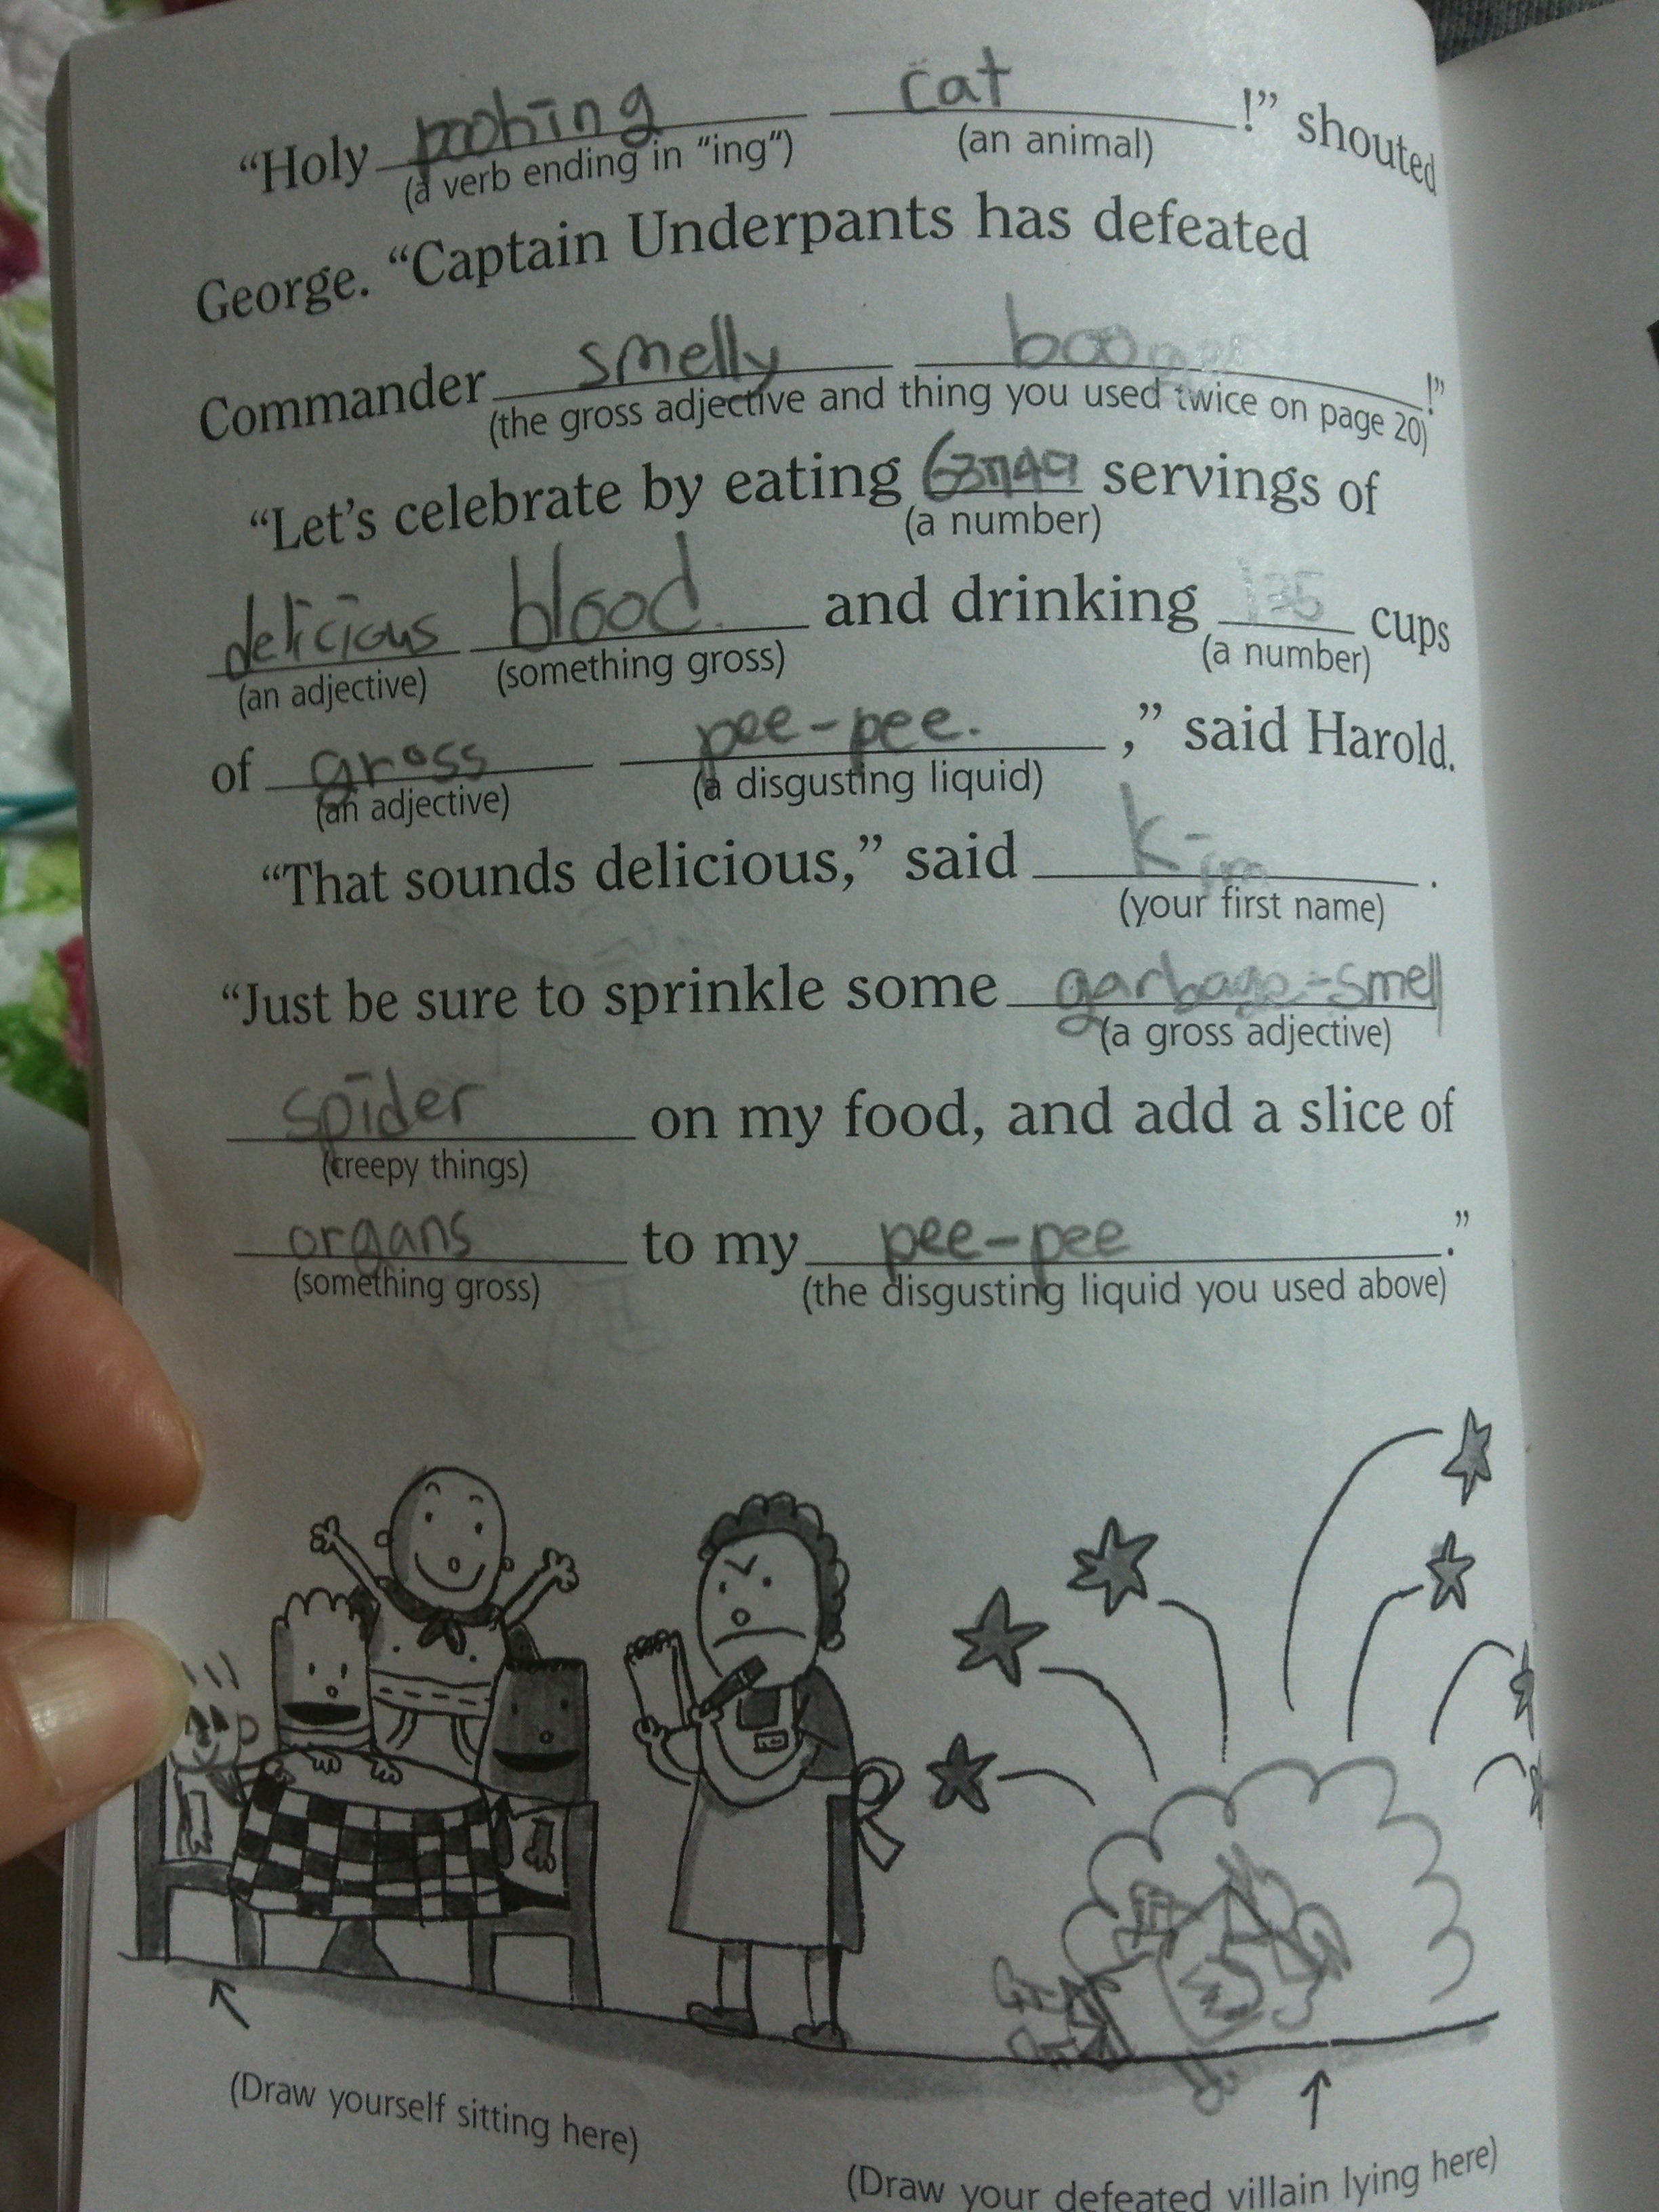 “Holy poohing cat !” shouted
(a verb ending in “ing”) (an animal)
George. “Captain Underpants has defeated
Commander smelly !”
(the gross adjective and thing you used twice on page 20)
“Let’s celebrate by eating servings of
(a number)
delicious blood. and drinking 135 cups
(an adjective) (something gross) (a number)
of gross pee-pee. ,” said Harold.
(an adjective) (a disgusting liquid)
“That sounds delicious,” said Kim .
(your first name)
“Just be sure to sprinkle some garbage-smell
(a gross adjective)
spider on my food, and add a slice of
(creepy things)
organs to my pee-pee .”
(something gross) (the disgusting liquid you used above)
(Draw yourself sitting here)
(Draw your defeated villain lying here)